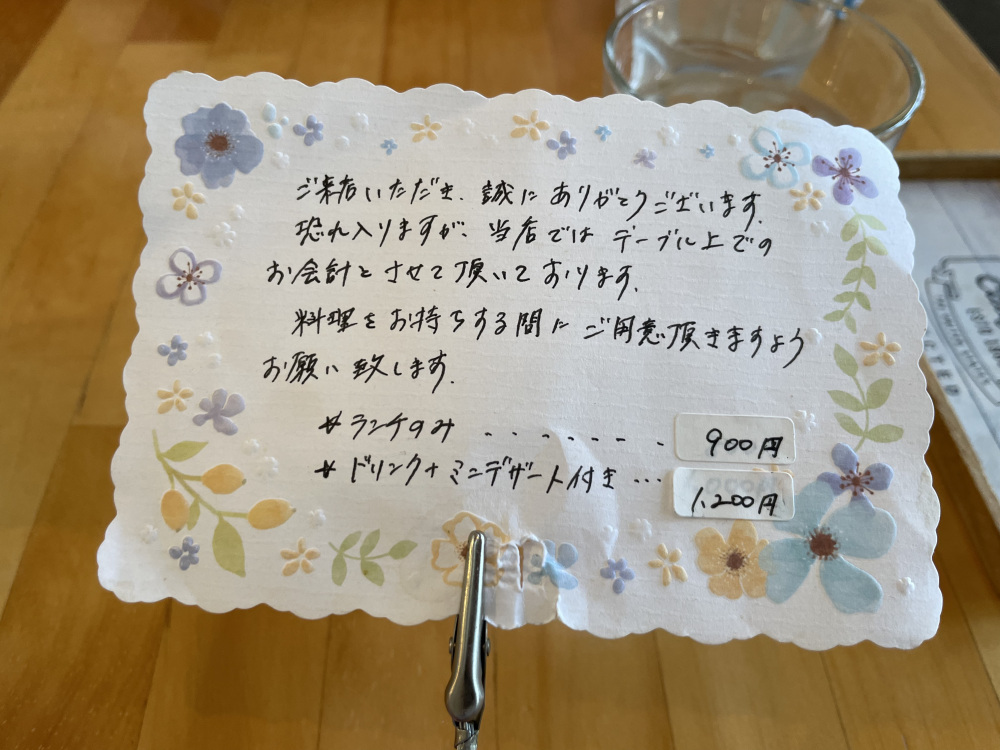 ご来店いただき、誠にありがとうございます。
恐れ入りますが、当店ではテーブル上での
お会計とさせて頂いております。
料理をお持ちする間にご用意頂きますよう
お願い致します。
*ランチのみ ・・・・・・・ 900円
*ドリンク+ミニデザート付き・・・ 1,200円